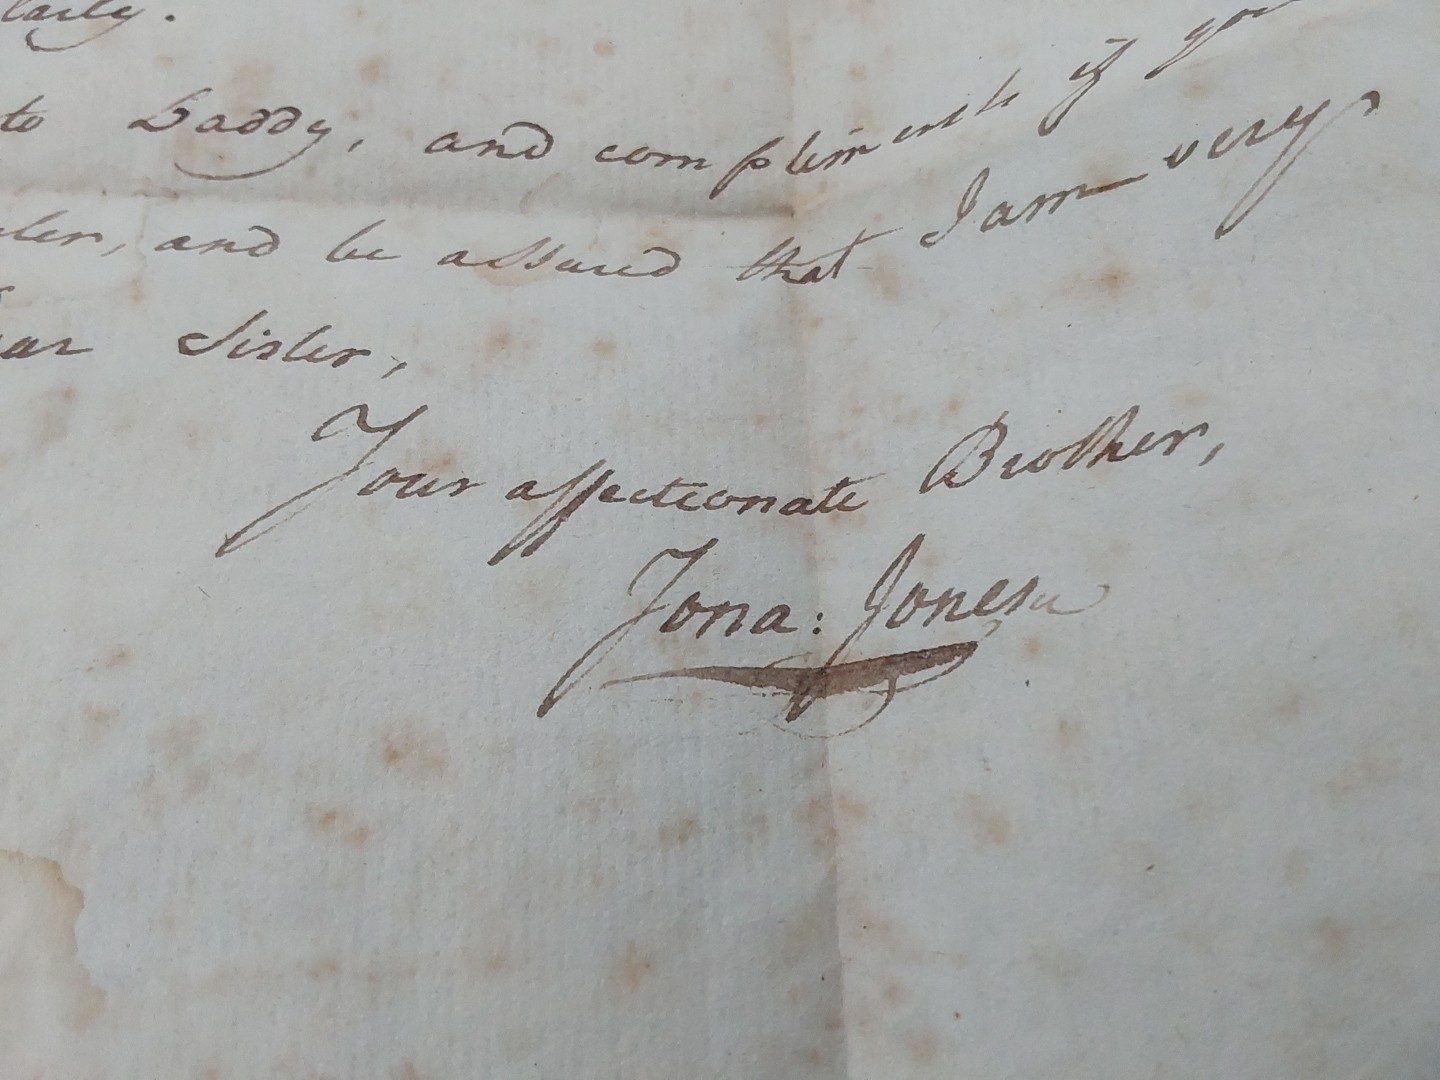 to Daddy, and compliments if you
and be assured that I am very
Sister,
Your affectionate Brother,
Jona: Jones